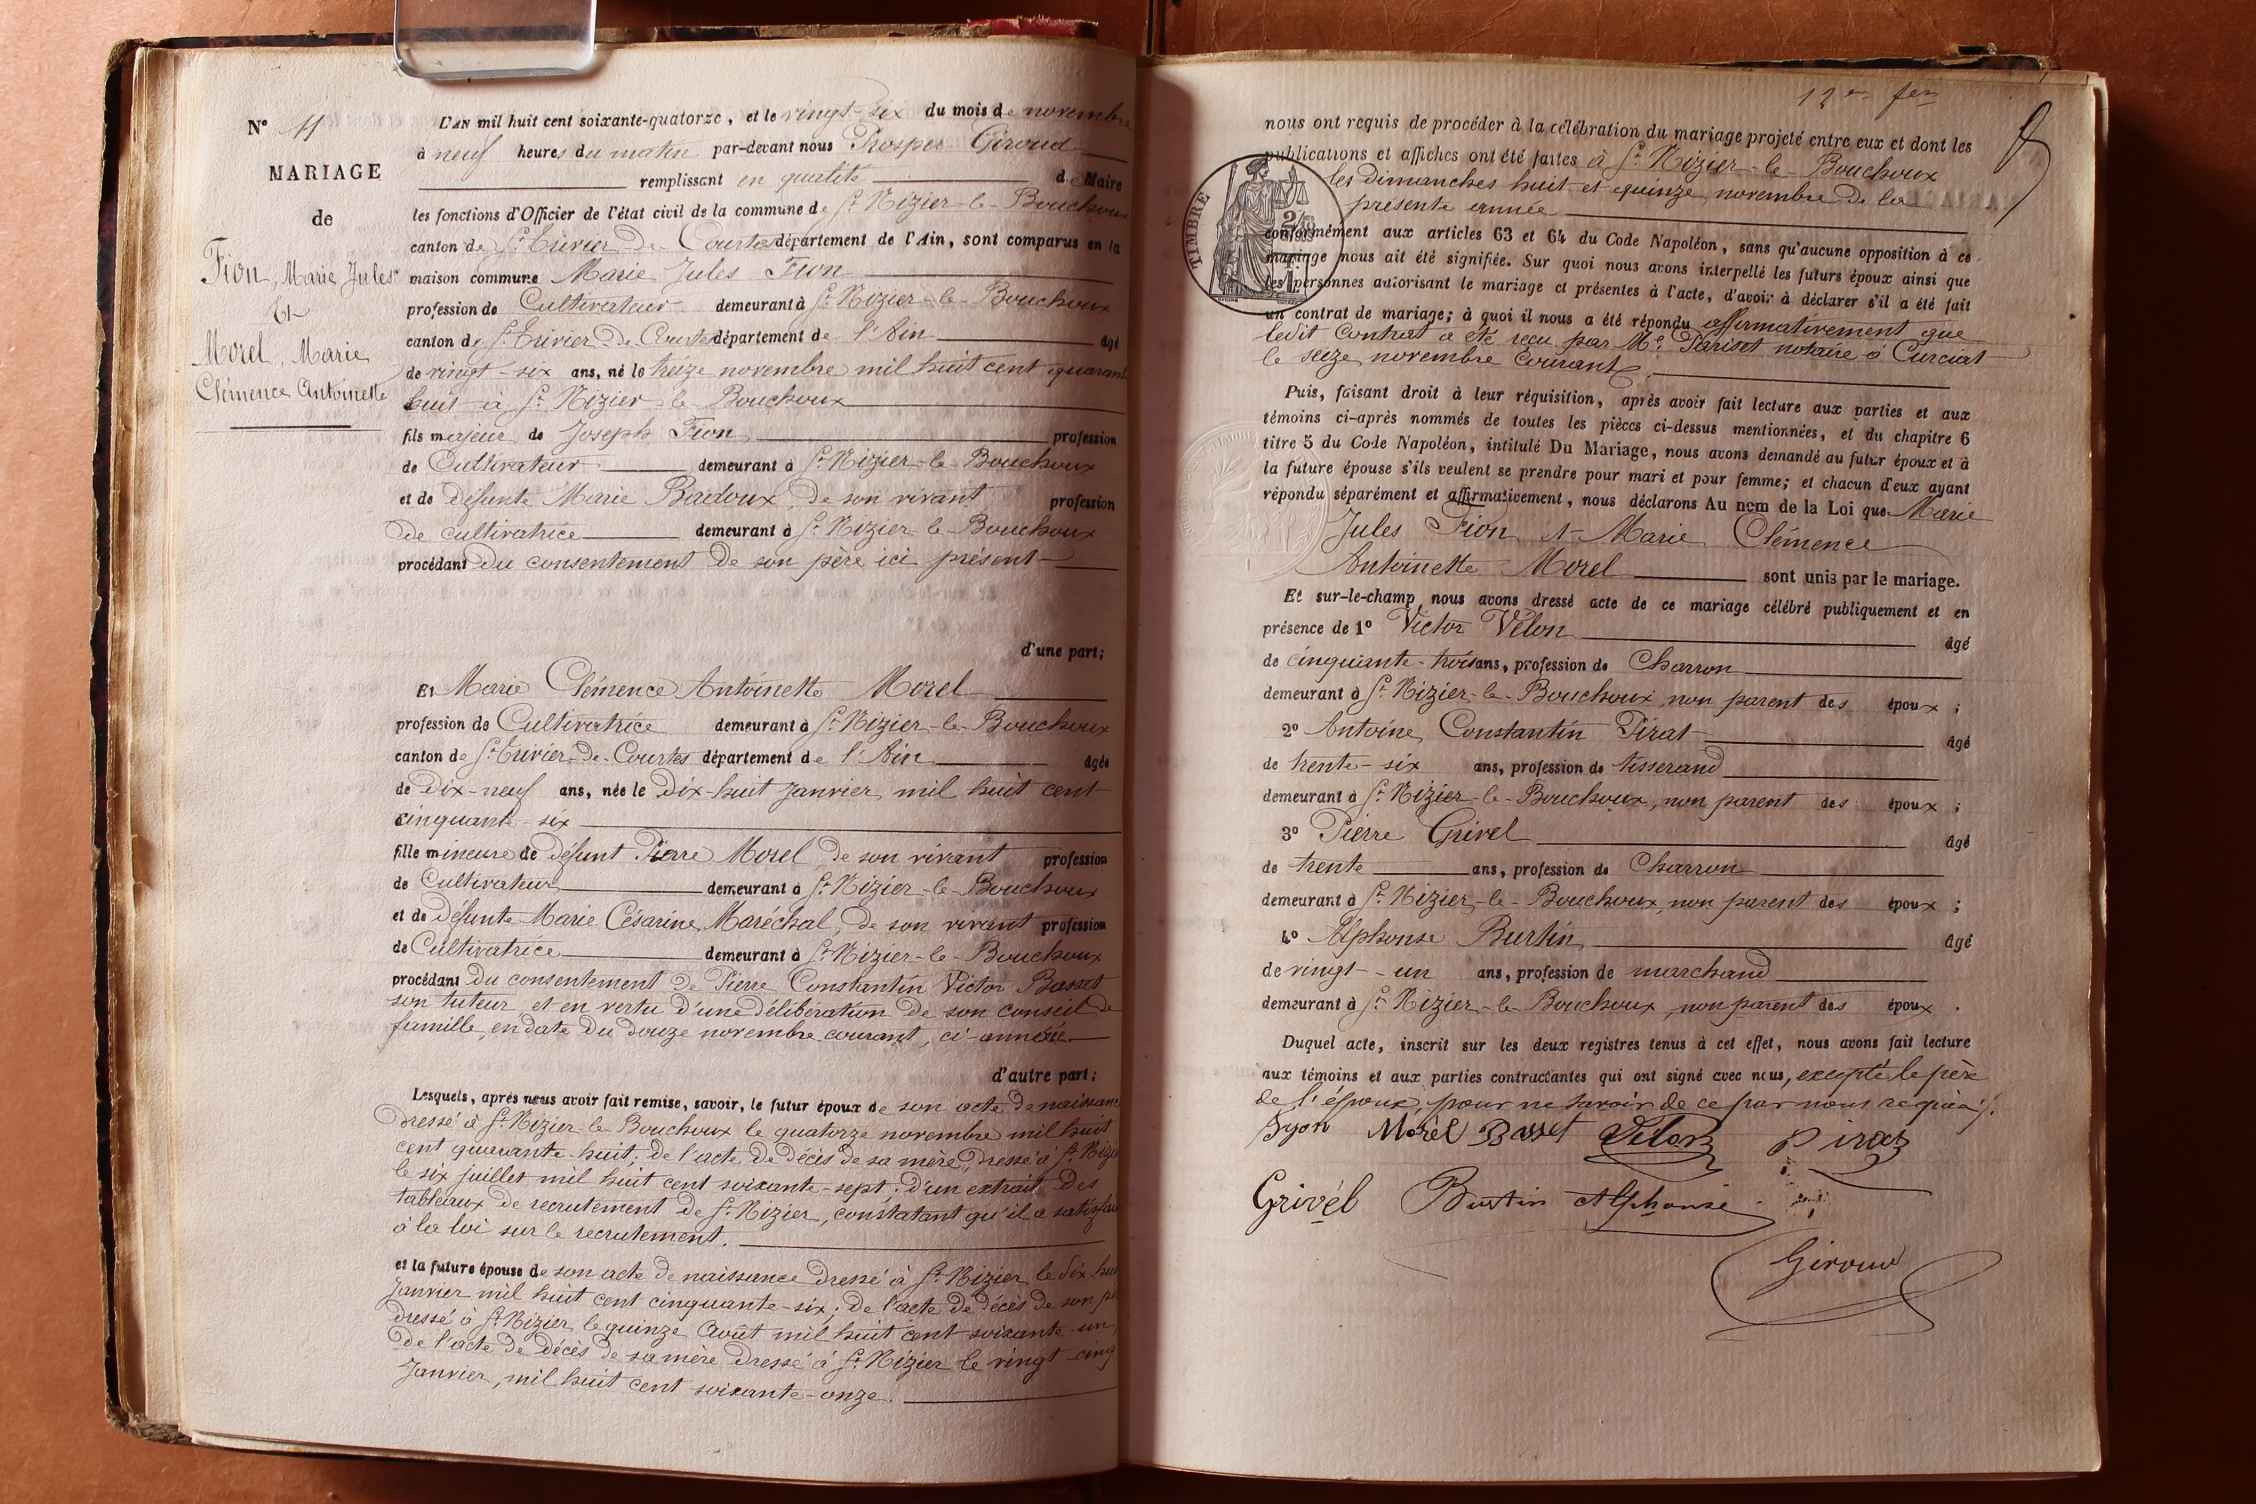 N° 11
MARIAGE
de
Fion, Marie Jules
Et
Morel, Marie
Clémence Antoinette
L'AN mil huit cent soixante-quatorze, et le vingt-six du mois de novembre
à neuf heures du matin par-devant nous Prosper Giroud
remplissant en qualité de Maire
les fonctions d'Officier de l'état civil de la commune de St Nizier-le-Bouchoux
canton de St Trivier-de-Courtes département de l'Ain, sont comparus en la
maison commune Marie Jules Fion
profession de Cultivateur demeurant à St Nizier-le-Bouchoux
canton de St Trivier-de-Courtes département de l'Ain âgé
de vingt-six ans, né le treize novembre mil huit cent quarante
huit à St Nizier-le-Bouchoux
fils majeur de Joseph Fion profession
de Cultivateur demeurant à St Nizier-le-Bouchoux
et de défunte Marie Badoux, de son vivant profession
de cultivatrice demeurant à St Nizier-le-Bouchoux
procédant du consentement de son père ici présent
d'une part;
Et Marie Clémence Antoinette Morel
profession de Cultivatrice demeurant à St Nizier-le-Bouchoux
canton de St Trivier-de-Courtes département de l'Ain âgée
de Dix-neuf ans, née le Dix-huit Janvier mil huit cent
cinquante-six
fille mineure de défunt Pierre Morel de son vivant profession
de Cultivateur demeurant à St Nizier-le-Bouchoux
et de défunte Marie Césarine Maréchal, de son vivant profession
de Cultivatrice demeurant à St Nizier-le-Bouchoux
procédant du consentement de Pierre Constantin Victor Basset
son tuteur et en vertu d'une délibération de son conseil de
famille, en date du douze novembre courant, ci-annexée
d'autre part;
Lesquels, après nous avoir fait remise, savoir, le futur époux de son acte de naissance
dressé à St Nizier-le-Bouchoux le quatorze novembre mil huit
cent quarante-huit; de l'acte de décès de sa mère, dressé à St Nizier
le six juillet mil huit cent soixante-sept; d'un extrait des
tableaux de recrutement de St Nizier, constatant qu'il a satisfait
à la loi sur le recrutement.
et la future épouse de son acte de naissance dressé à St Nizier le dix-huit
Janvier mil huit cent cinquante-six; de l'acte de décès de son père
dressé à St Nizier le quinze Août mil huit cent soixante-un,
de l'acte de décès de sa mère dressé à St Nizier le vingt-cinq
Janvier, mil huit cent soixante-onze.
nous ont requis de procéder à la célébration du mariage projeté entre eux et dont les
publications et affiches ont été faites à St Nizier-le-Bouchoux
les dimanches huit et quinze novembre de la
présente année
TIMBRE
conformément aux articles 63 et 64 du Code Napoléon, sans qu'aucune opposition à ce
mariage nous ait été signifiée. Sur quoi nous avons interpellé les futurs époux ainsi que
les personnes autorisant le mariage et présentes à l'acte, d'avoir à déclarer s'il a été fait
un contrat de mariage; à quoi il nous a été répondu affirmativement que
ledit Contrat a été reçu par Me Pariset notaire à Curciat
le seize novembre Courant.
Puis, faisant droit à leur réquisition, après avoir fait lecture aux parties et aux
témoins ci-après nommés de toutes les pièces ci-dessus mentionnées, et du chapitre 6
titre 5 du Code Napoléon, intitulé Du Mariage, nous avons demandé au futur époux et à
la future épouse s'ils veulent se prendre pour mari et pour femme; et chacun d'eux ayant
répondu séparément et affirmativement, nous déclarons Au nom de la Loi que Marie
Jules Fion et Marie Clémence
Antoinette Morel sont unis par le mariage.
Et sur-le-champ nous avons dressé acte de ce mariage célébré publiquement et en
présence de 1° Victor Vélon âgé
de cinquante-trois ans, profession de Charron
demeurant à St Nizier-le-Bouchoux, non parent des époux;
2° Antoine Constantin Pirat âgé
de trente-six ans, profession de tisserand
demeurant à St Nizier-le-Bouchoux, non parent des époux;
3° Pierre Grivel âgé
de trente ans, profession de Charron
demeurant à St Nizier-le-Bouchoux, non parent des époux;
4° Alphonse Burtin âgé
de vingt-un ans, profession de marchand
demeurant à St Nizier-le-Bouchoux, non parent des époux.
Duquel acte, inscrit sur les deux registres tenus à cet effet, nous avons fait lecture
aux témoins et aux parties contractantes qui ont signé avec nous, excepté le père
de l'époux, pour ne savoir de ce par nous requis.
Fyon Morel Basset Vélon Pirat
Grivél Burtin Alphonse
Giroud